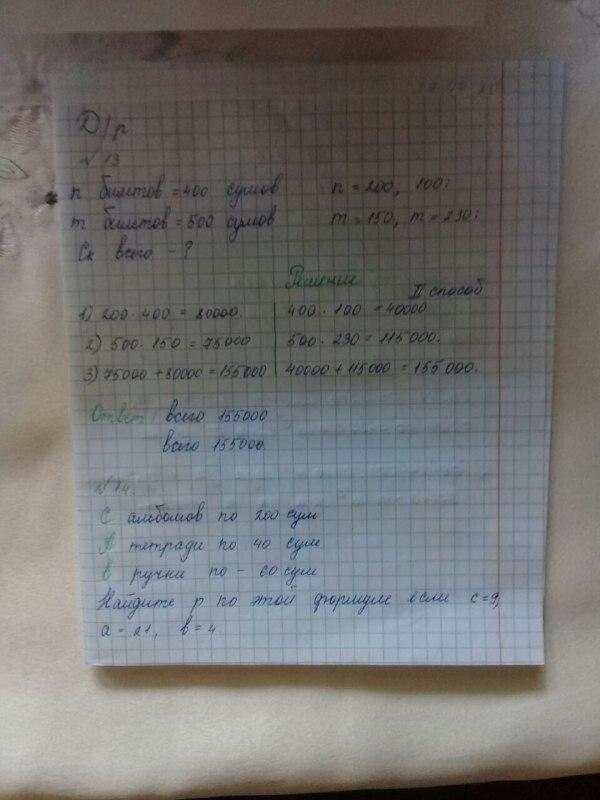 Д/р
№13
n билетов = 400 сумов n = 200, 100;
m билетов = 500 сумов m = 150, m = 230;
Ск всего - ?
Решение
II способ
1) 200 · 400 = 80000. 400 · 100 = 40000
2) 500 · 150 = 75000 500 · 230 = 115000.
3) 75000 + 80000 = 155000 40000 + 115000 = 155000.
Ответ: всего 155000
всего 155000.
№14.
С альбомов по 200 сум
А тетради по 40 сум
В ручки по - 60 сум
Найдите р по этой формуле если с = 9,
а = 21, в = 4